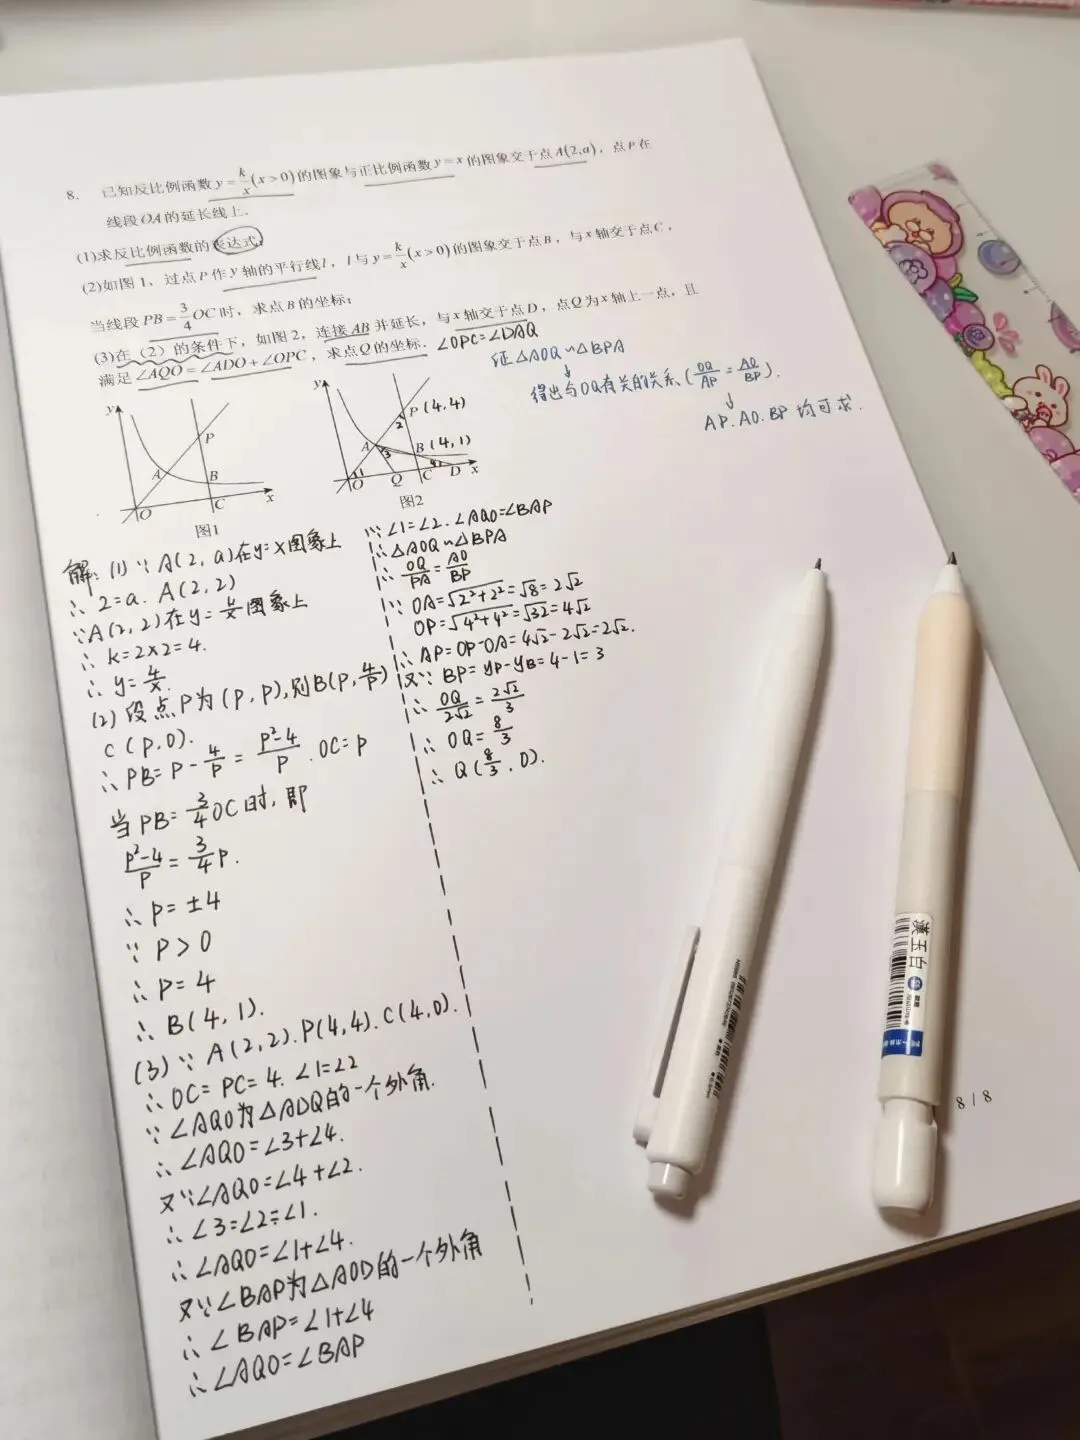 8、 已知反比例函数 y=k/x(x>0)的图象与正比例函数 y=x 的图象交于点 A(2,a)，点 P 在
线段 OA 的延长线上．
(1)求反比例函数的表达式；
(2)如图 1，过点 P 作 y 轴的平行线 l，l 与 y=k/x(x>0)的图象交于点 B，与 x 轴交于点 C，
当线段 PB=3/4OC 时，求点 B 的坐标；
(3)在（2）的条件下，如图 2，连接 AB 并延长，与 x 轴交于点 D，点 Q 为 x 轴上一点，且
满足 ∠AQO=∠ADO+∠OPC，求点 Q 的坐标．
∠OPC=∠DAQ
证△AOQ∽△BPA
↓
得出与OQ有关的关系(OQ/AP=AO/BP).
↓
AP.AO.BP 均可求.
y
P
A
B
O
C
x
图1
y
P(4,4)
2
A
3
B(4,1)
1
4
O
Q
C
D
x
图2
解：(1)∵A(2,a)在y=x图象上
∴2=a. A(2,2)
∵A(2,2)在y=k/x图象上
∴k=2×2=4.
∴y=4/x.
(2)段点P为(P,P),则B(P,4/P)
C(P,0).
∴PB=P-4/P=P²-4/P.OC=P
当PB=3/4OC时,即
P²-4/P=3/4P.
∴P=±4
∵P>0
∴P=4
∴B(4,1).
(3)∵A(2,2).P(4,4).C(4,0).
∴OC=PC=4.∠1=∠2
∵∠AQO为△ADQ的一个外角.
∴∠AQO=∠3+∠4.
又∵∠AQO=∠4+∠2.
∴∠3=∠2=∠1.
∴∠AQO=∠1+∠4.
又∵∠BAP为△AOD的一个外角
∴∠BAP=∠1+∠4
∴∠AQO=∠BAP
∵∠1=∠2.∠AQO=∠BAP
∴△AOQ∽△BPA
∴OQ/PA=AO/BP
∵OA=√2²+2²=√8=2√2
OP=√4²+4²=√32=4√2
∴AP=OP-OA=4√2-2√2=2√2.
又∵BP=yP-yB=4-1=3
∴OQ/2√2=2√2/3
∴OQ=8/3
∴Q(8/3,0).
漢玉白
8 / 8